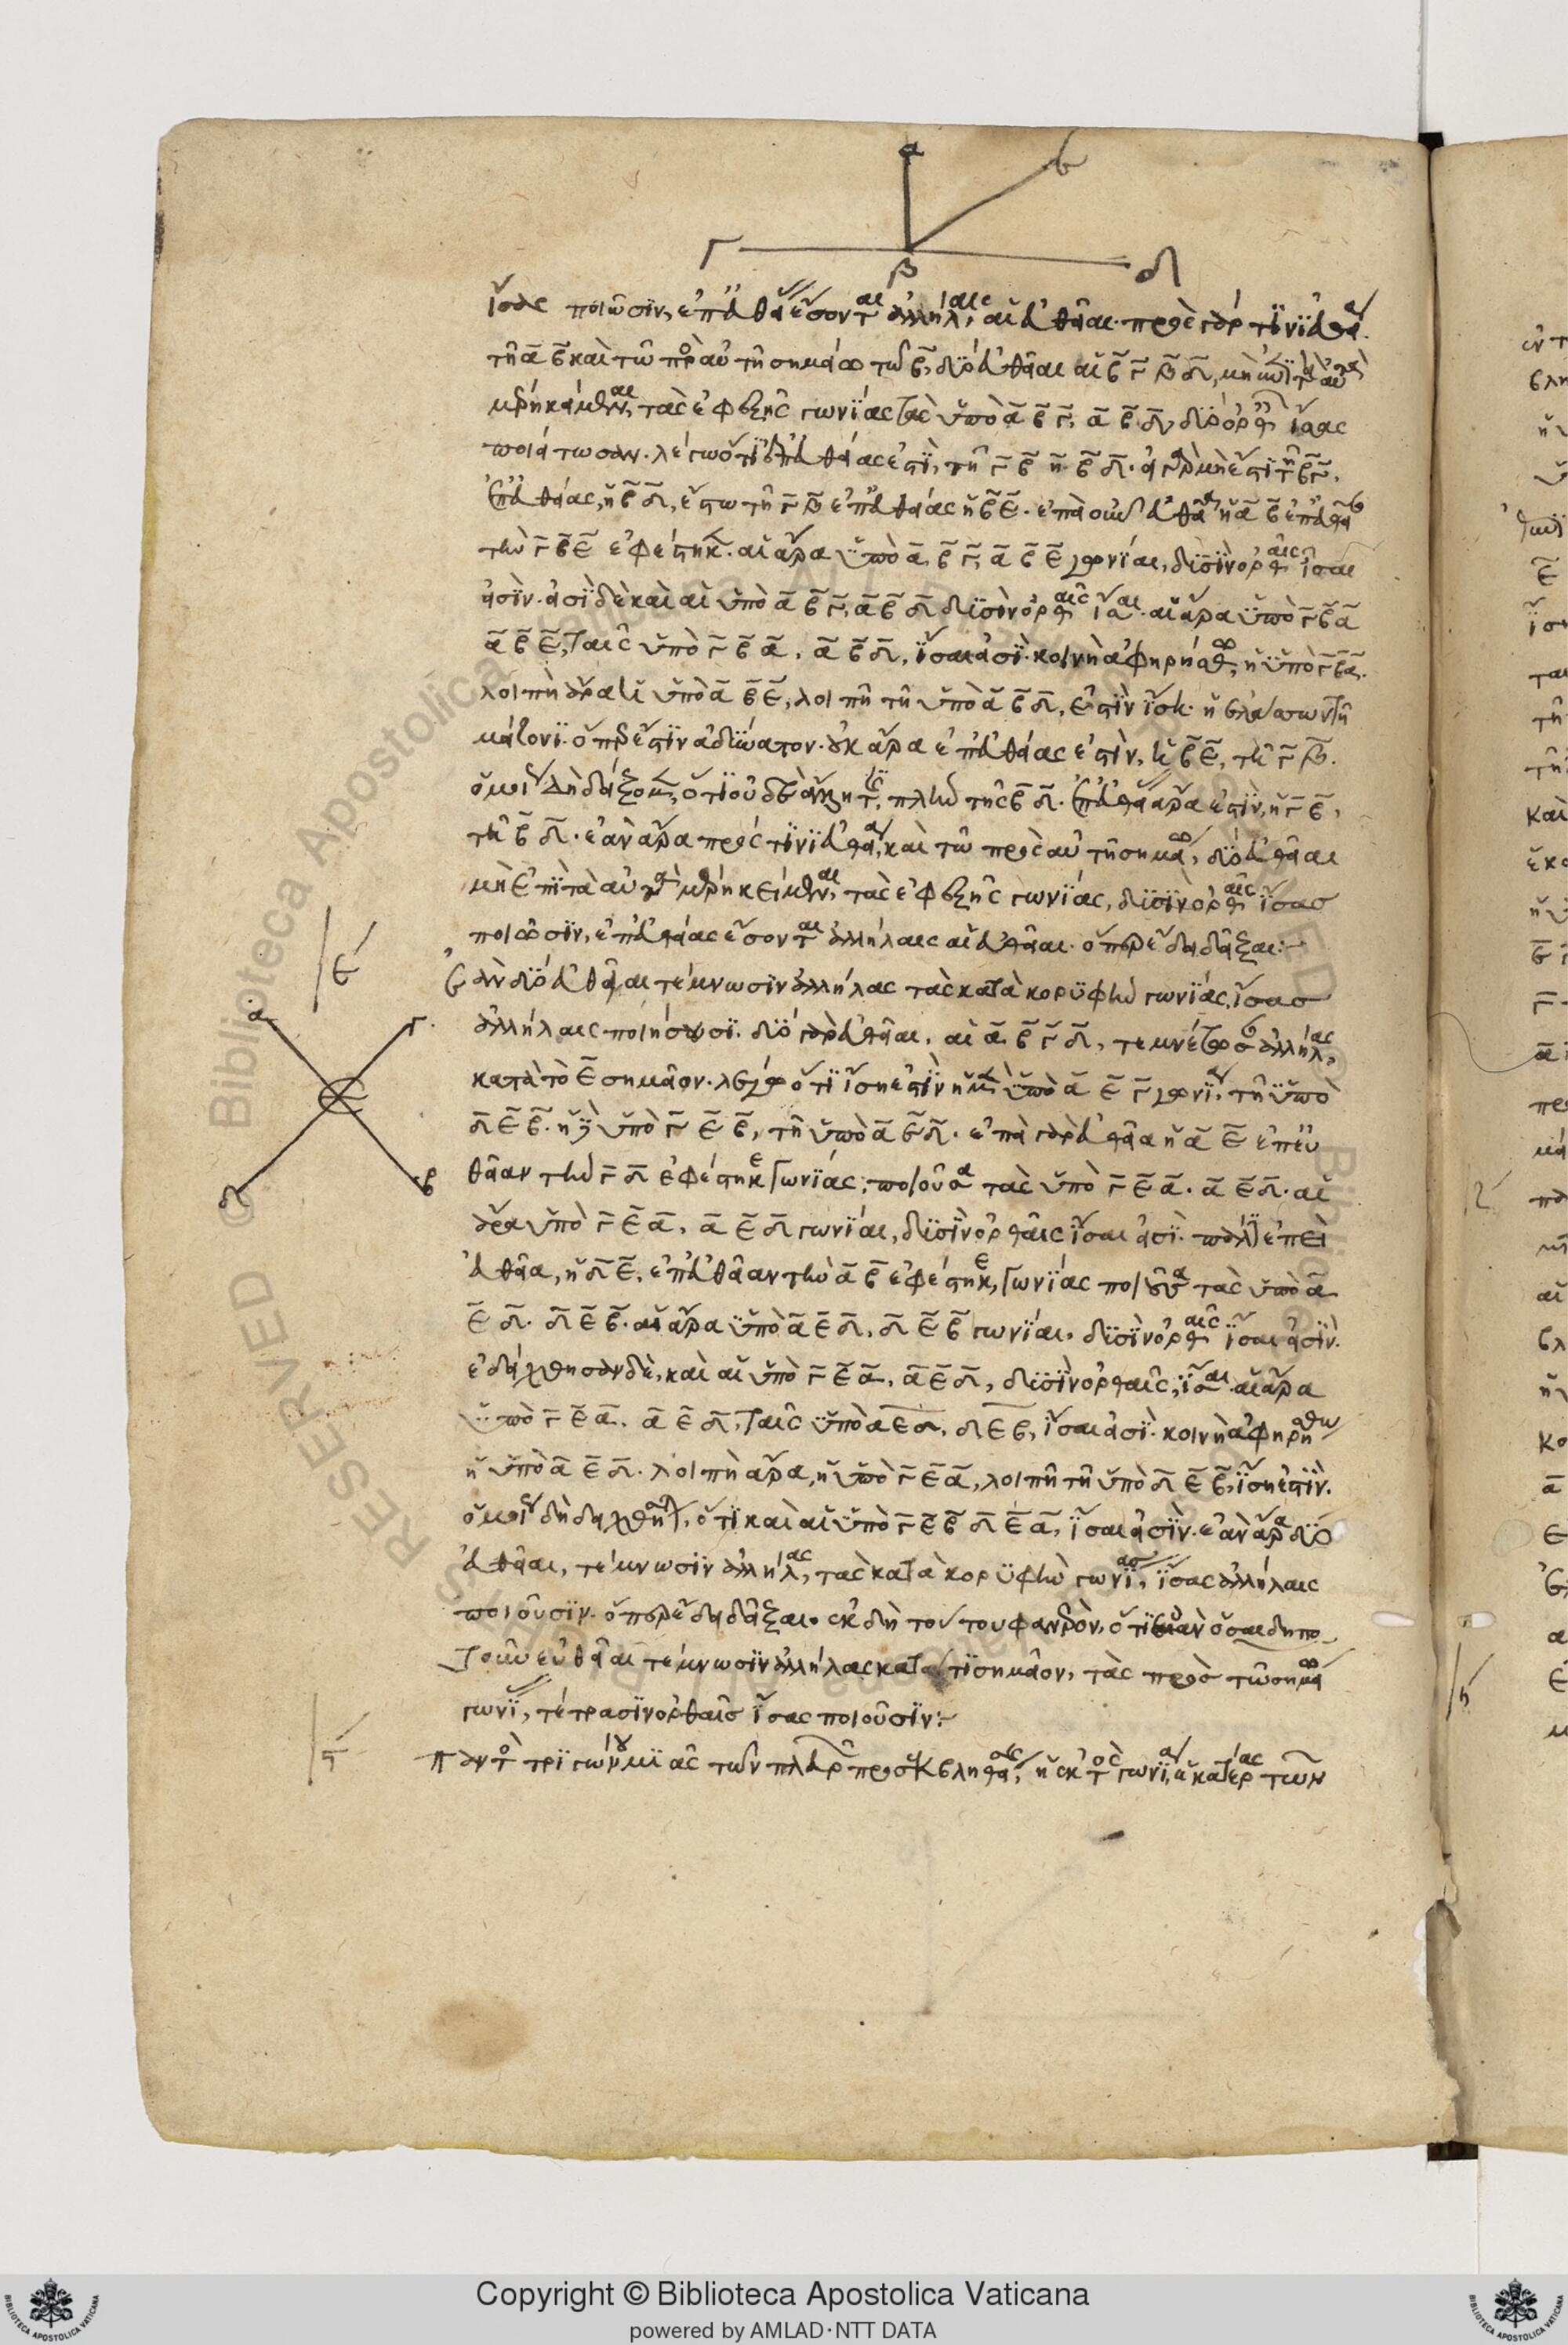 α
β
Γ
δ
ἴσας ποιῶσιν, ἐπ' εὐθείας ἔσονται ἀλλήλαις αἱ εὐθεῖαι. πρὸς γάρ τινι εὐθείᾳ
τῇ α β καὶ τῷ πρὸς αὐτῇ σημείῳ τῷ β, δύο εὐθεῖαι αἱ β γ β δ, μὴ ἐπὶ τὰ αὐτὰ
μέρη κείμεναι, τὰς ἐφεξῆς γωνίας τὰς ὑπὸ α β γ, α β δ, δύο ὀρθαῖς ἴσας
ποιείτωσαν. λέγω ὅτι ἐπ' εὐθείας ἐστὶ, τῇ γ β ἡ β δ. εἰ γὰρ μή ἐστι τῇ β γ,
ἐπ' εὐθείας, ἡ β δ, ἔστω τῇ γ β ἐπ' εὐθείας ἡ β ε. ἐπεὶ οὖν εὐθεῖα ἡ α β ἐπ' εὐθεῖαν
τὴν γ β ε ἐφέστηκεν. αἱ ἄρα ὑπὸ α β γ, α β ε γωνίαι, δυσὶν ὀρθαῖς ἴσαι
εἰσὶν. εἰσὶ δὲ καὶ αἱ ὑπὸ α β γ, α β δ δυσὶν ὀρθαῖς ἴσαι. αἱ ἄρα ὑπὸ γ β α
α β ε, ταῖς ὑπὸ γ β α, α β δ, ἴσαι εἰσὶ. κοινὴ ἀφηρήσθω, ἡ ὑπὸ γ β α.
λοιπὴ ἄρα ἡ ὑπὸ α β ε, λοιπῇ τῇ ὑπὸ α β δ, ἐστὶν ἴση. ἡ ἐλάσσων τῇ
μείζονι. ὅπερ ἐστὶν ἀδύνατον. οὐκ ἄρα ἐπ' εὐθείας ἐστὶν, ἡ β ε, τῇ γ β.
ὁμοίως δὴ δείξομεν, ὅτι οὐδὲ ἄλλη τις, πλὴν τῆς β δ. ἐπ' εὐθείας ἄρα ἐστὶν, ἡ γ β,
τῇ β δ. ἐὰν ἄρα πρός τινι εὐθείᾳ, καὶ τῷ πρὸς αὐτῇ σημείῳ, δύο εὐθεῖαι
μὴ ἐπὶ τὰ αὐτὰ μέρη κείμεναι, τὰς ἐφεξῆς γωνίας, δυσὶν ὀρθαῖς ἴσας
ποιῶσιν, ἐπ' εὐθείας ἔσονται ἀλλήλαις αἱ εὐθεῖαι. ὅπερ ἔδει δεῖξαι:
Ἐὰν δύο εὐθεῖαι τέμνωσιν ἀλλήλας τὰς κατὰ κορυφὴν γωνίας, ἴσας
ἀλλήλαις ποιήσουσι. δύο γὰρ εὐθεῖαι, αἱ α β γ δ, τεμνέτωσαν ἀλλήλας
κατὰ τὸ ε σημεῖον. λέγω ὅτι ἴση ἐστὶν ἡ μὲν ὑπὸ α ε γ γωνία, τῇ ὑπὸ
δ ε β. ἡ δὲ ὑπὸ γ ε β, τῇ ὑπὸ α ε δ. ἐπεὶ γὰρ εὐθεῖα ἡ α ε ἐπ' εὐ
θεῖαν τὴν γ δ ἐφέστηκε γωνίας, ποιοῦσα τὰς ὑπὸ γ ε α. α ε δ. αἱ
ἄρα ὑπὸ γ ε α, α ε δ γωνίαι, δυσὶν ὀρθαῖς ἴσαι εἰσὶ. πάλιν ἐπεὶ
εὐθεῖα, ἡ δ ε, ἐπ' εὐθεῖαν τὴν α β ἐφέστηκε, γωνίας ποιοῦσα τὰς ὑπὸ α
ε δ. δ ε β. αἱ ἄρα ὑπὸ α ε δ, δ ε β γωνίαι, δυσὶν ὀρθαῖς ἴσαι εἰσὶν.
ἐδείχθησαν δὲ, καὶ αἱ ὑπὸ γ ε α, α ε δ, δυσὶν ὀρθαῖς, ἴσαι. αἱ ἄρα
ὑπὸ γ ε α, α ε δ, ταῖς ὑπὸ α ε δ, δ ε β, ἴσαι εἰσὶ. κοινὴ ἀφηρήσθω
ἡ ὑπὸ α ε δ. λοιπὴ ἄρα, ἡ ὑπὸ γ ε α, λοιπῇ τῇ ὑπὸ δ ε β, ἴση ἐστὶν.
ὁμοίως δὴ δειχθήσεται, ὅτι καὶ αἱ ὑπὸ γ ε β δ ε α, ἴσαι εἰσὶν. ἐὰν ἄρα δύο
εὐθεῖαι, τέμνωσιν ἀλλήλας, τὰς κατὰ κορυφὴν γωνίας, ἴσας ἀλλήλαις
ποιοῦσιν. ὅπερ ἔδει δεῖξαι. ἐκ δὴ τούτου φανερὸν, ὅτι ἐὰν ὅσαι δηπο
τοῦν εὐθεῖαι τέμνωσιν ἀλλήλας κατά τι σημεῖον, τὰς πρὸς τῷ σημείῳ
γωνίας, τέτρασιν ὀρθαῖς ἴσας ποιοῦσιν:
παντὸς τριγώνου μιᾶς τῶν πλευρῶν προσεκβληθείσης, ἡ ἐκτὸς γωνία, ἑκατέρας τῶν
α
Γ
ε
δ
β
Copyright © Biblioteca Apostolica Vaticana
powered by AMLAD·NTT DATA